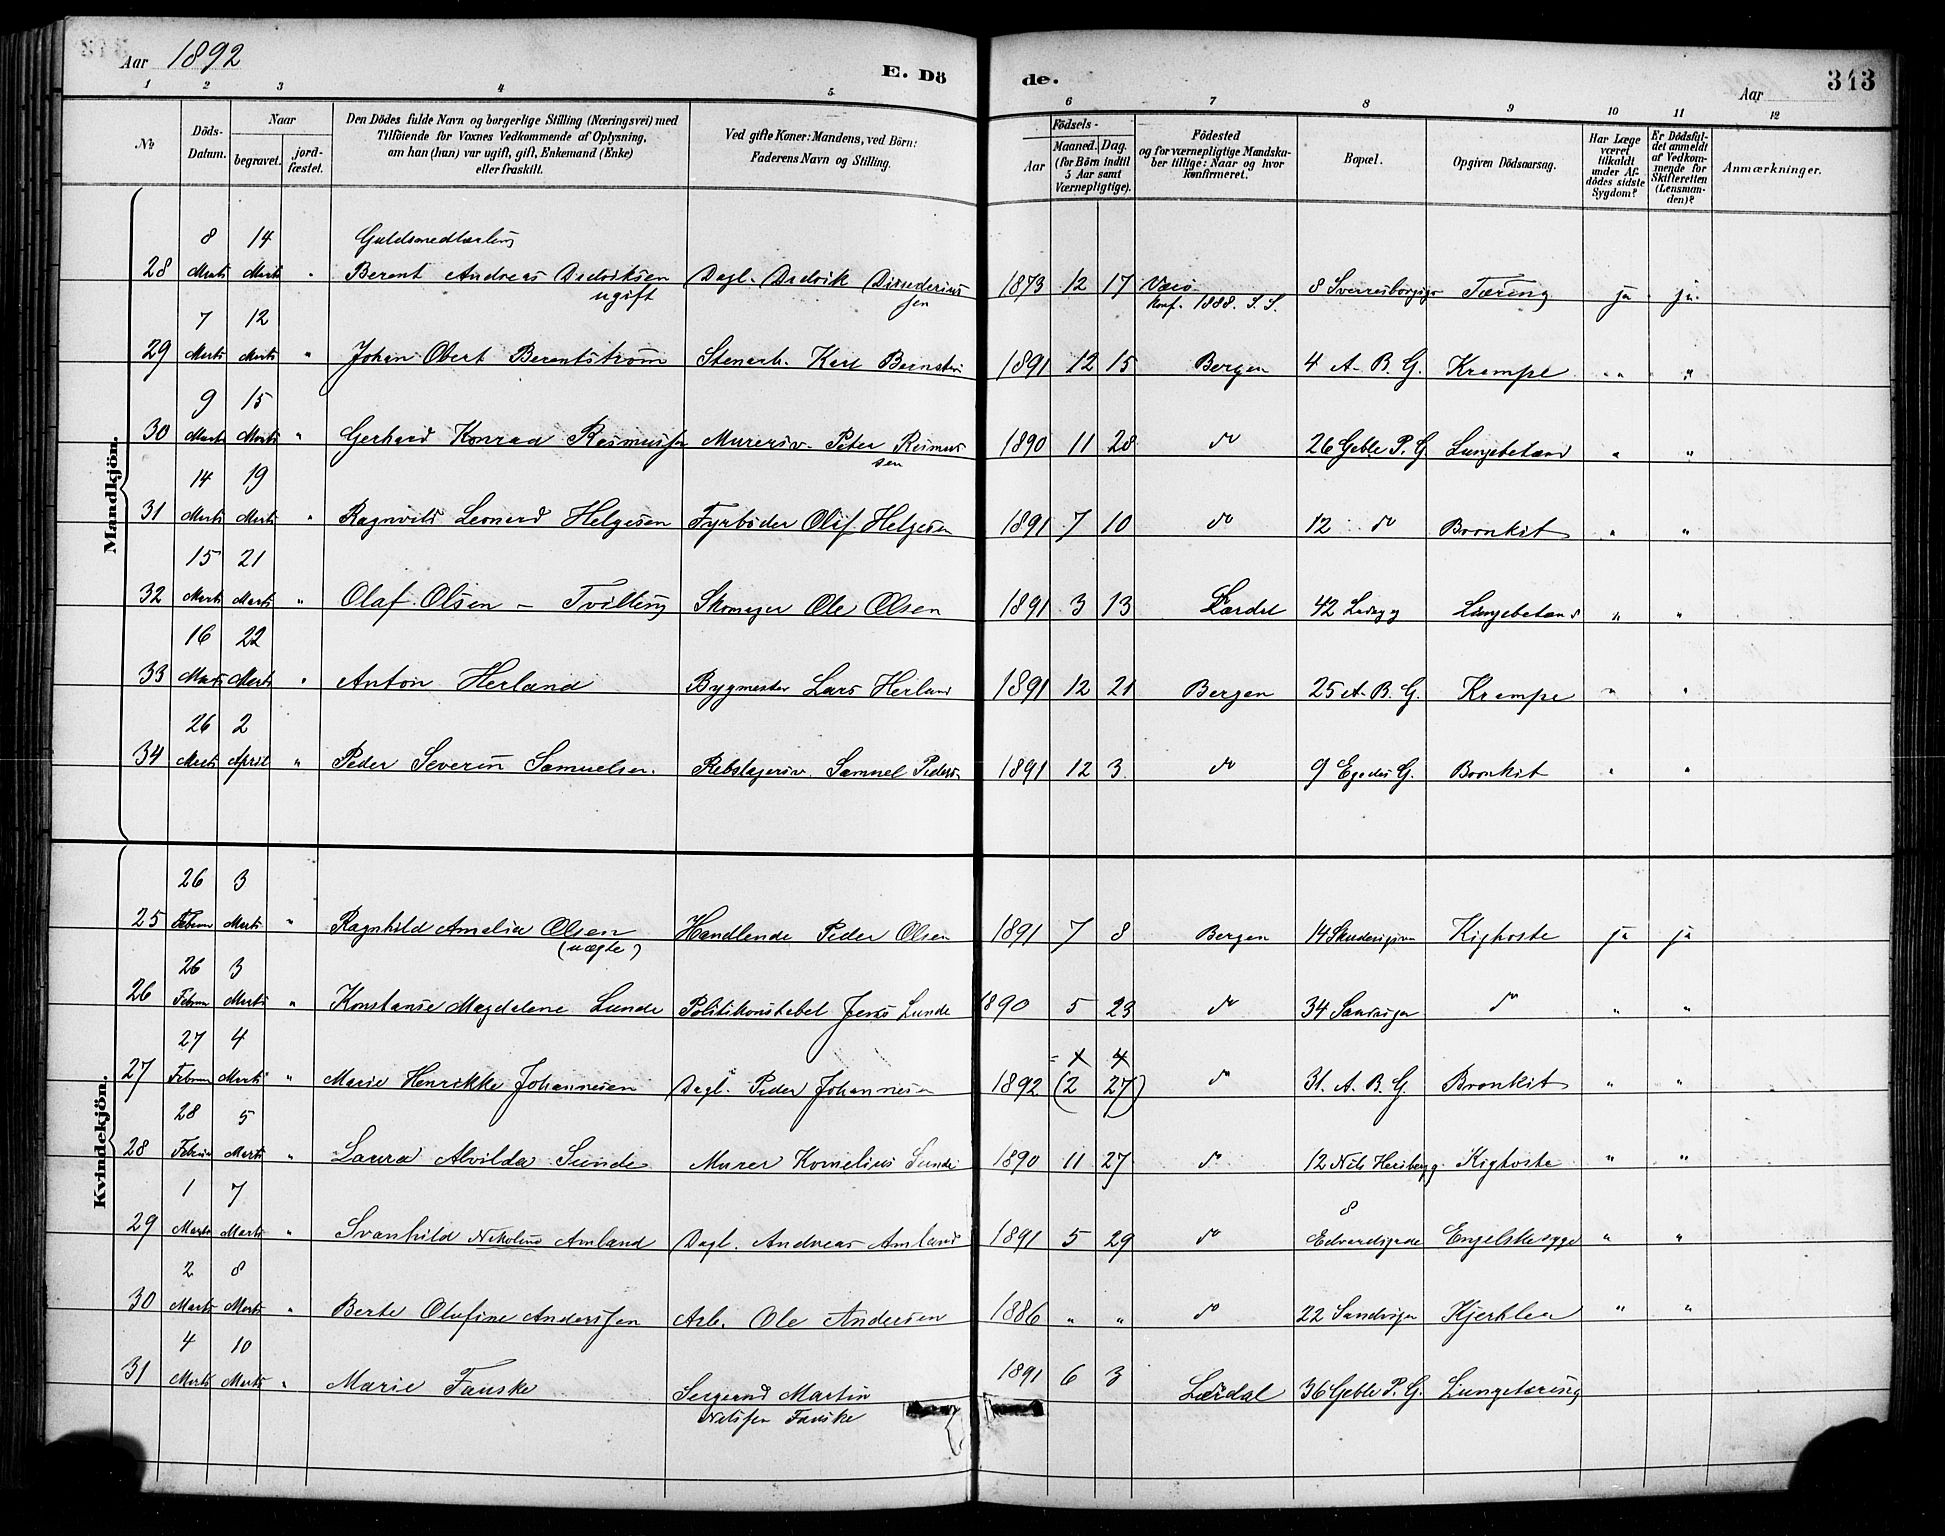 Aar 1892
E. Döde.
Aar
313
1 2 3 4 5 6 7 8 9 10 11 12
No
Döds-Datum.
Naar
begravet.
jordfæstet.
Den Dödes fulde Navn og borgerlige Stilling (Næringsvei) med
Tilföiende for Voxnes Vedkommende af Oplysning,
om han (hun) var ugift, gift, Enkemand (Enke)
eller fraskilt.
Ved gifte Koner: Mandens, ved Börn:
Faderens Navn og Stilling.
Födsels-
Aar
Maaned. Dag.
(for Börn indtil
5 Aar samt
Værnepligtige).
Födested
og for værnepligtige Mandska-
ber tillige: Naar og hvor
konfirmeret.
Bopæl.
Opgiven Dödsaarsag.
Har Læge
været
tilkaldt
under Af-
dödes sidste
Sygdom?
Er Dödsfal-
det anmeldt
af Vedkom-
mende for
Skifteretten
(Lensman-
den)?
Anmærkninger.
Mandkjön.
8 14 Guldsmedlærling
28 Marts Marts " Berent Andreas Didriksen Dagl. Didrik 1873 12 17 Værö 8 Sverresborgsg. Tæring ja ja
ugift sen konf. 1888. S. S.
7 12
29 Marts Marts " Johan Obert Berentström Stenarb. Karl 1891 12 15 Bergen 4 A. B. G. Krampe " "
9 15
30 Marts Marts " Gerhard Konrad Rasmussen Murersv. Peter Rasmus- 1890 11 28 do 26 Geble P. G Lungebetænd " "
sen
14 19
31 Marts Marts " Ragnvald Leonard Helgesen Fyrböder Olaf Helgesen 1891 7 10 do 12 do Bronkit " "
15 21
32 Marts Marts " Olaf Olsen - Tvilling Skomager Ole Olsen 1891 3 13 Lærdal 42 Ladeg g Lungebetænd " "
16 22
33 Marts Marts " Anton Herland Bygmester Lars Herland 1891 12 21 Bergen 25 A. B. G. Krampe " "
26 2
34 Marts April " Peder Severin Samuelsen. Rebslagersv. Samuel Pedersen 1891 12 3 do 9 Egedes G. Bronkit " "
Kvindekjön.
26 3
25 Februar Marts " Ragnhild Amalia Olsen Handlende Peder Olsen 1891 7 8 Bergen 14 Kighoste ja ja
(uægte)
26 3
26 Februar Marts " Konstanse Magdalene Lunde Politikonstabel Jens Lunde 1890 5 23 do 34 Sandvigen do " "
27 4
27 Februar Marts " Marie Henrikke Johannesen Dagl. Peder Johannesen 1892 (2 27) do 31. A. B. G. Bronkit " "
28 5
28 Februar Marts " Laura Alvilda Sunde Murer Kornelius Sunde 1890 11 27 do 12 Nils Kighoste " "
1 7 8
29 Marts Marts " Svanhild Nikoline Amland Dagl. Andreas Amland 1891 5 29 do Edvardsgade Engelskesyge " "
2 8
30 Marts Marts " Berte Olufine Anderssen Arb. Ole Andersen 1886 " " do 22 Sandvigen " "
4 10
31 Marts Marts " Marie Fauske Sergeant Martin 1891 6 3 Lærdal 36 Geble P. G. Lungetæring
Nilssen Fauske